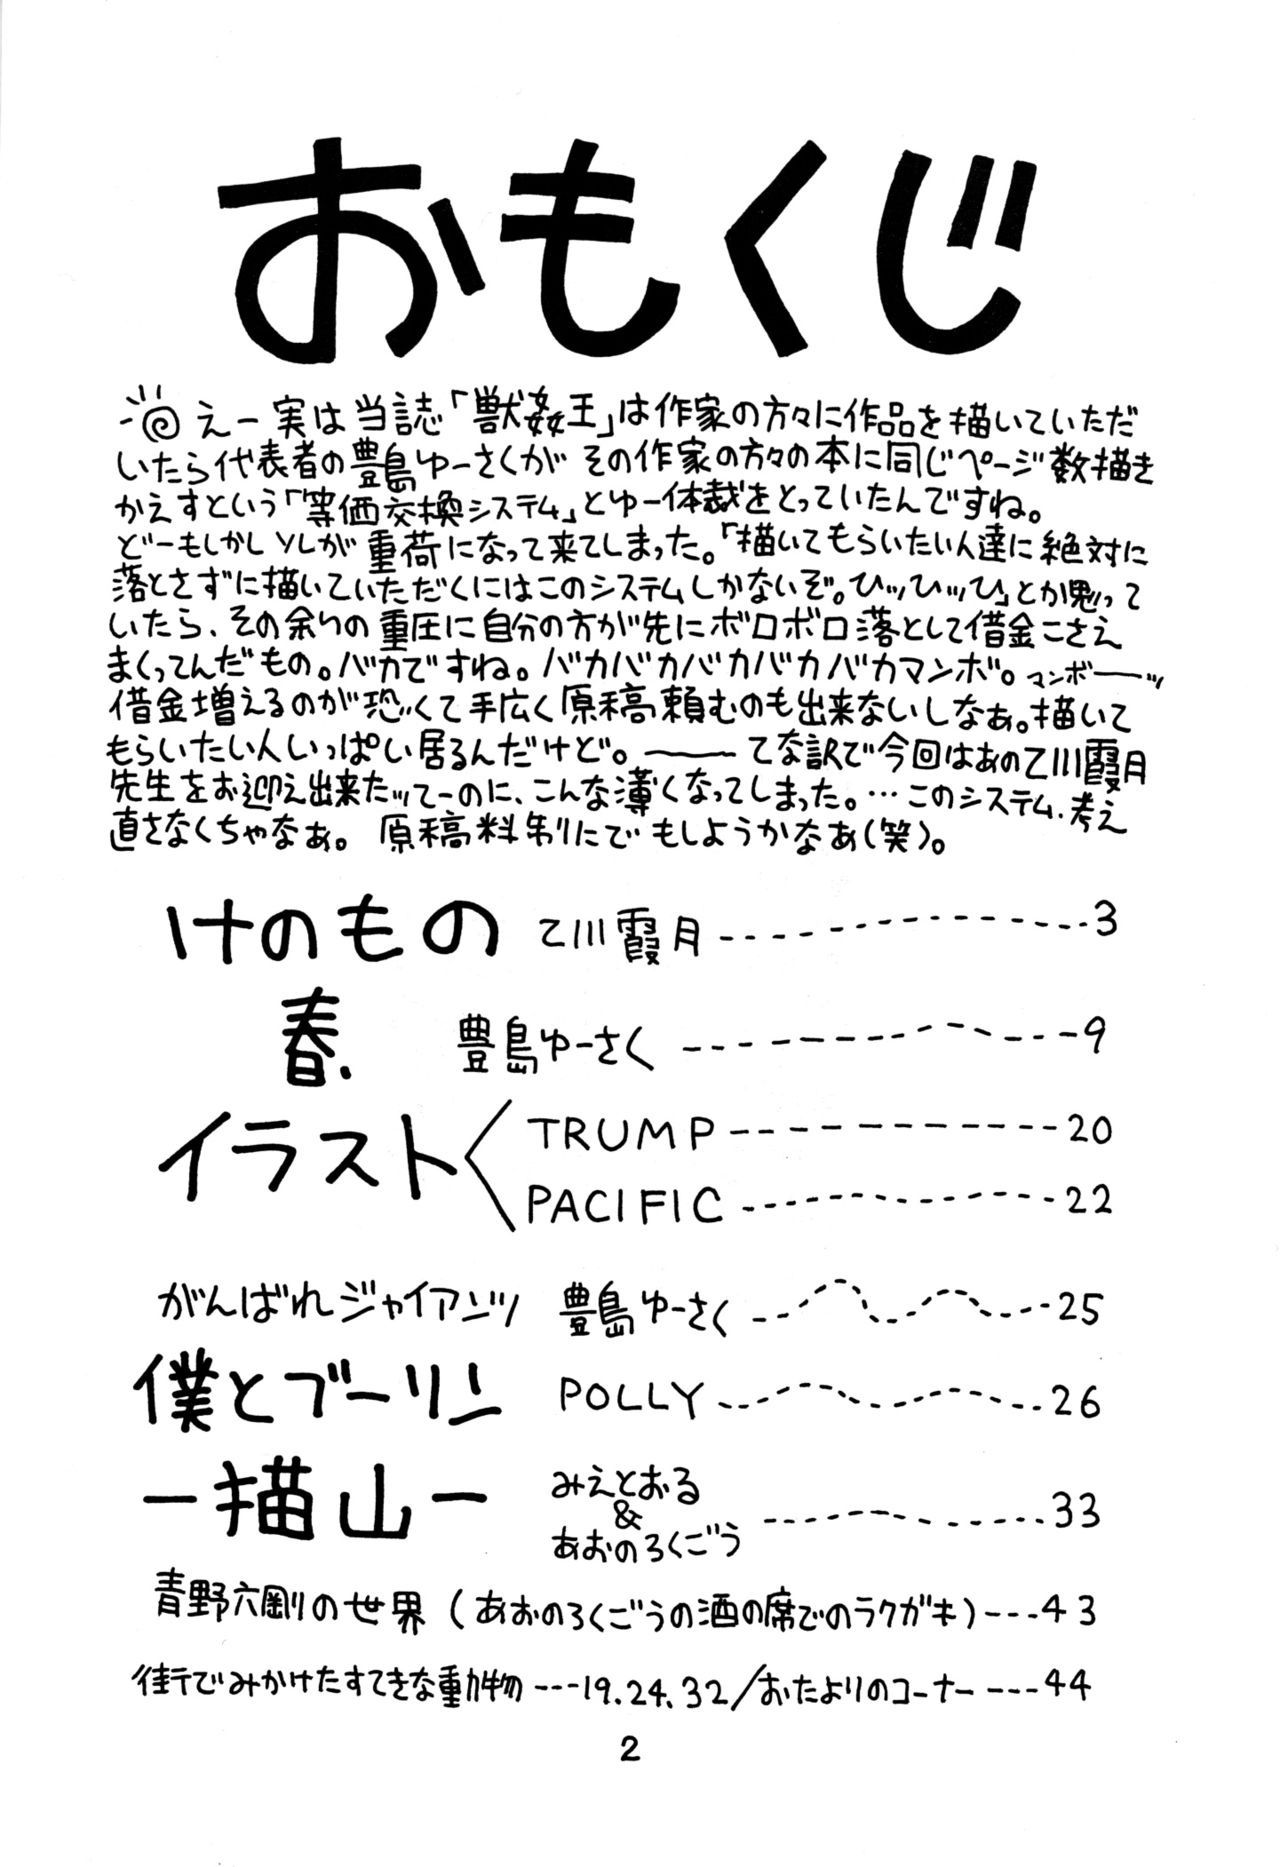 おもくじ
えー実は当誌「獣姦王」は作家の方々に作品を描いていただ
いたら代表者の豊島ゆーさくが その作家の方々の本に同じページ数描き
かえすという「等価交換システム」とゆー体裁をとっていたんですね。
どーもしかしソレが重荷になって来てしまった。「描いてもらいたい人達に絶対に
落とさずに描いていただくにはこのシステムしかないぞ。ひッひッひ」とか思って
いたら、その余りの重圧に自分の方が先にボロボロ落として借金こさえ
まくってんだもの。バカですね。バカバカバカバカバカマンボ。マンボーーッ
借金増えるのが恐くて手広く原稿頼むのも出来ないしなぁ。描いて
もらいたい人いっぱい居るんだけど。――てな訳で今回はあの乙川霞月
先生をお迎え出来たッてーのに、こんな薄くなってしまった。…このシステム、考え
直さなくちゃなぁ。 原稿料制にでもしようかなあ(笑)。
けのもの 乙川霞月 ------3
春. 豊島ゆーさく ------9
イラスト TRUMP ------20
PACIFIC ------22
がんばれジャイアンツ 豊島ゆーさく ------25
僕とブーリン POLLY ------26
ー描山ー みえとおる
&
あおのろくごう ------33
青野六剛の世界(あおのろくごうの酒の席でのラクガキ)---43
街でみかけたすてきな動物---19.24.32/おたよりのコーナー---44
2